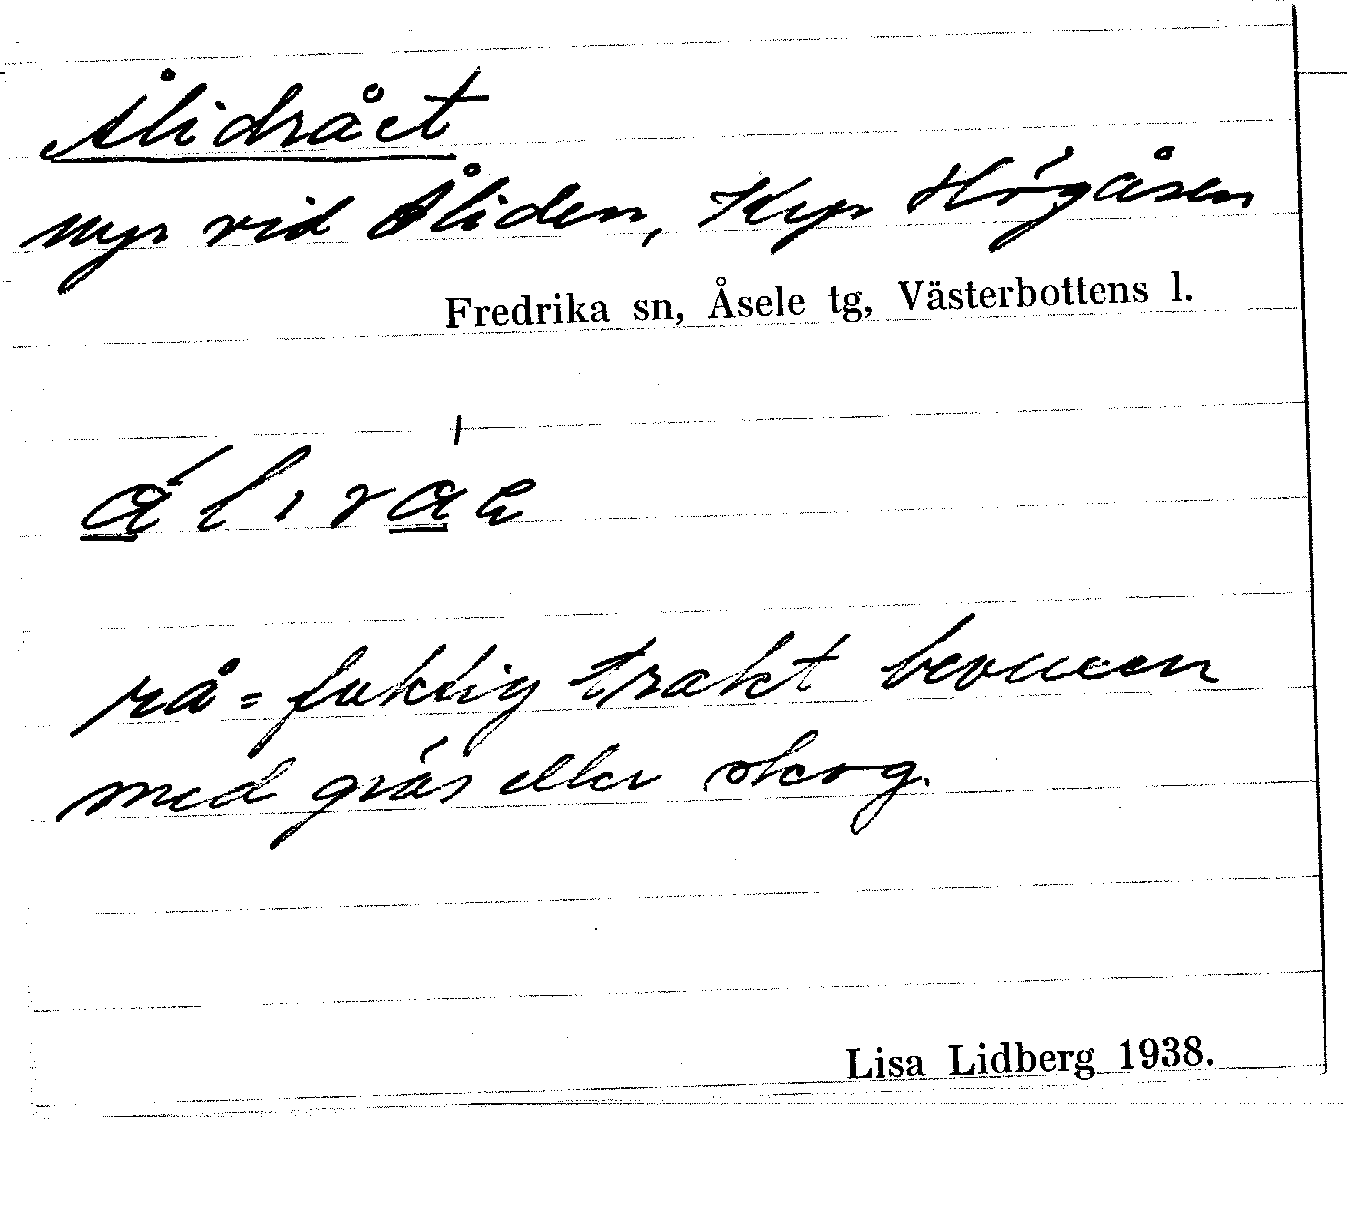 Ålidrået
myr vid Åliden, Kyr Högåsen
Fredrika sn, Åsele tg, Västerbottens l.
rå = fuktig trakt bevuxen
med gräs eller skog.
Lisa Lidberg 1938.